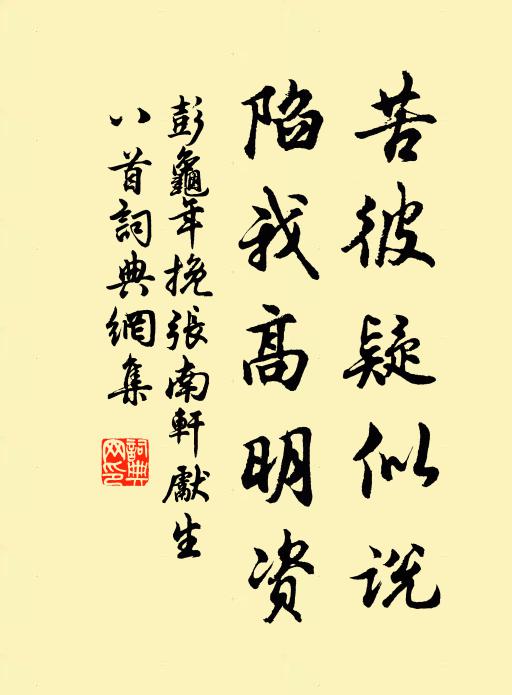 苦彼疑似说
陷我高明资
彭龜年挽張南軒獻生
八首詞典網集
詞典网印